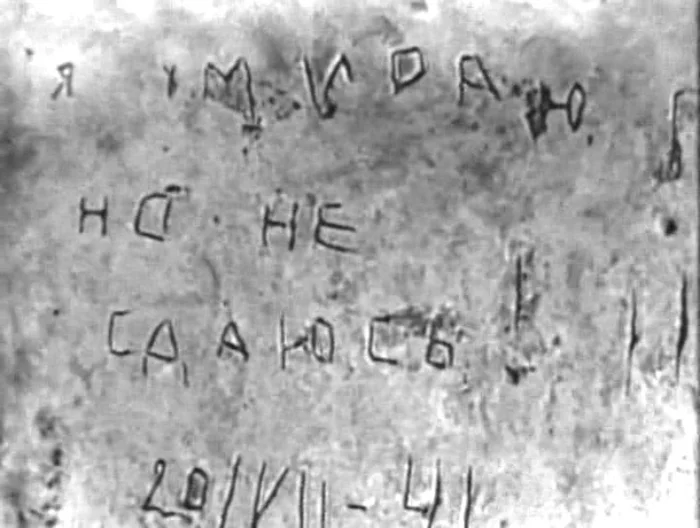 я умираю
но не
сдаюсь!
20/VII-41